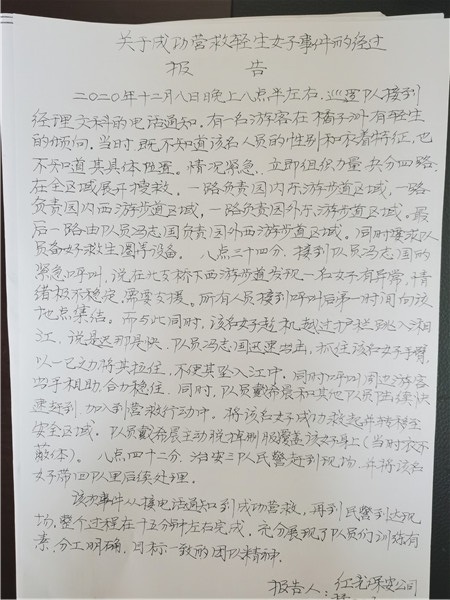 关于成功营救轻生女子事件的经过
报告
二〇二〇年十二月八日晚上八点半左右，巡逻队接到
经理文科的电话通知，有一名游客在橘子洲有轻生
的倾向。当时既不知道该名人员的性别和衣着特征，也
不知道其具体位置。情况紧急，立即组织力量共分四路
在全区域展开搜救，一路负责园内东游步道区域，一路
负责园内西游步道区域，一路负责园外东游步道区域。最
后一路由队员冯志国负责园外西游步道区域。同时要求队
员备好救生圈等设备。八点三十四分，接到队员冯志国的
紧急呼叫，说在北支桥下西游步道发现一名女子有异常，情
绪极不稳定，需要支援。所有人员接到呼叫后第一时间向该
地点集结。而与此同时，该名女子趁机越过护栏跳入湘
江，说是迟那是快，队员冯志国迅速出击，抓住该名女子手臂，
以一己之力将其拉住，不使其坠入江中。同时呼叫周边游客
与手机助，合力稳住，同时，队员戴希晨和其他队员陆续快
速赶到，加入到营救行动中。将该名女子成功救起并转移至
安全区域。队员戴希晨主动脱掉制服覆盖该女身上（当时衣不
蔽体）。八点四十二分，治安三队民警赶到现场，并将该名
女子带回队里后续处理。
该次事件从接电话通知到成功营救，再到民警到达现
场，整个过程在十五分钟左右完成，充分展现了队员们训练有
素、分工明确、目标一致的团队精神。
报告人：红亮保安公司